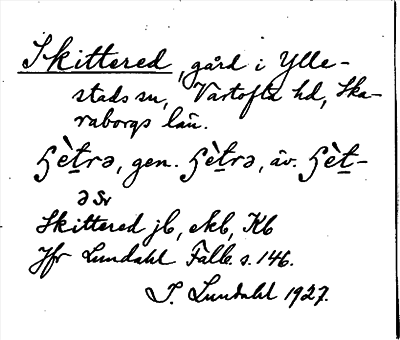 Skittered, gård i Ylle-
stads sn, Vartofta hd, Ska-
raborgs län.
ʂètrə, gen. ʂètrə, äv. ʂèt-
ə sr
Skittered jb, ekb, Kb
Jfr Lundahl Falb. s. 146.
I. Lundahl 1927.